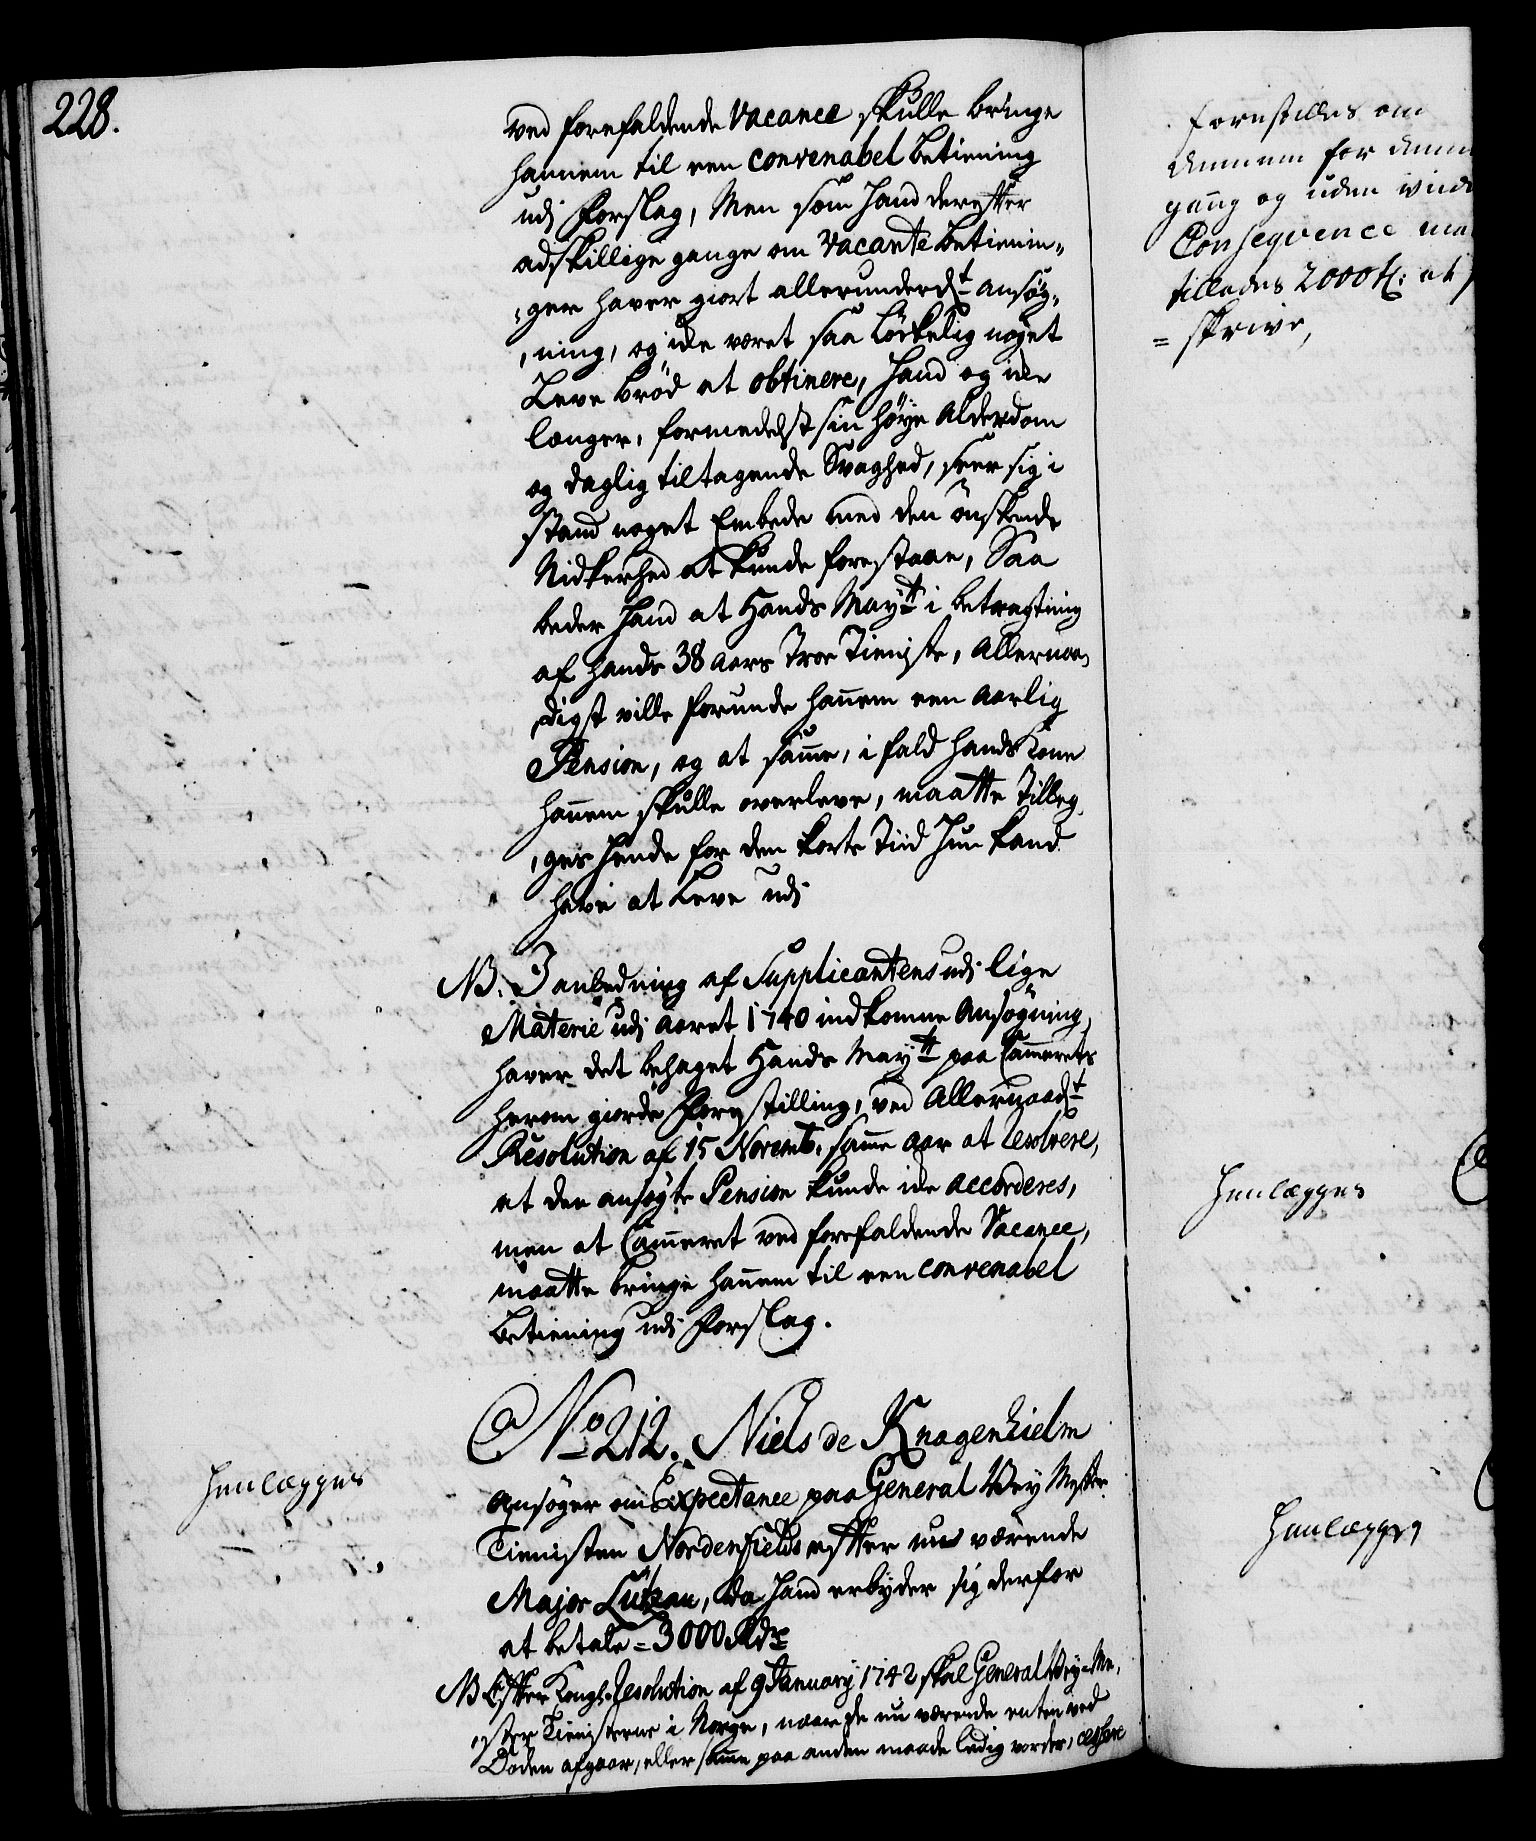 228.
ved forefaldende Vacance skulle bringe
hannem til een convenabel betiening
udj forslag, Men som hand derefter
adskillige gange om Vacante betienin-
-ger haver giort allerunderd^t ansøg-
-ning, og icke været saa løckelig noget
Leve brød at obtinere, hand og icke
længer, formedelst sin høye Alderdom
og daglig tiltagende Svaghed, seer sig i
stand noget Embede med den ønskende
Nidkerhed at kunde forestaae, Saa
beder hand at Hands May^tt i betragtning
af hands 38 Aars Troe Tieniste, Allernaa-
digst ville forunde hannem een aarlig
Pension, og at samme, i fald hands Kone
hannem skulle overleve, maatte Tilleg-
-ges hende for den korte Tiid hun kand
have at Leve udj
NB. I anledning af Supplicantens udj lige
Materie udj Aaret 1740 indkomne Ansøgning,
haver det behaget Hands May^tt paa Cammerets
herom giorde forestilling, ved Allernaad^t
Resolution af 15 Novemb. samme aar at resolvere,
at den ansøgte Pension kunde icke accorderes,
men at Cammeret ved forefaldende Vacance,
maatte bringe hannem til een convenabel
betiening udj forslag.
No 212. Niels de Knagenhielm
Henlægges
Ansøger om Expectance paa General Vey Mester
Tienisten Nordenfields efter nu værende
Major Lützau, da hand erbyder sig derfor
at betale = 3000 Rdr
NB Efter Kongl. Resolution af 9 January 1742 skal General Vey-Me-
-ster Tienisterne i Norge, naar de nu værende enten ved
Døden afgaar, eller samme paa anden maade ledig vorder, cessere
forestilles om
gang og uden
Conseqvence
tillades 2000 at
= skrive,
Henlægges
Henlægges